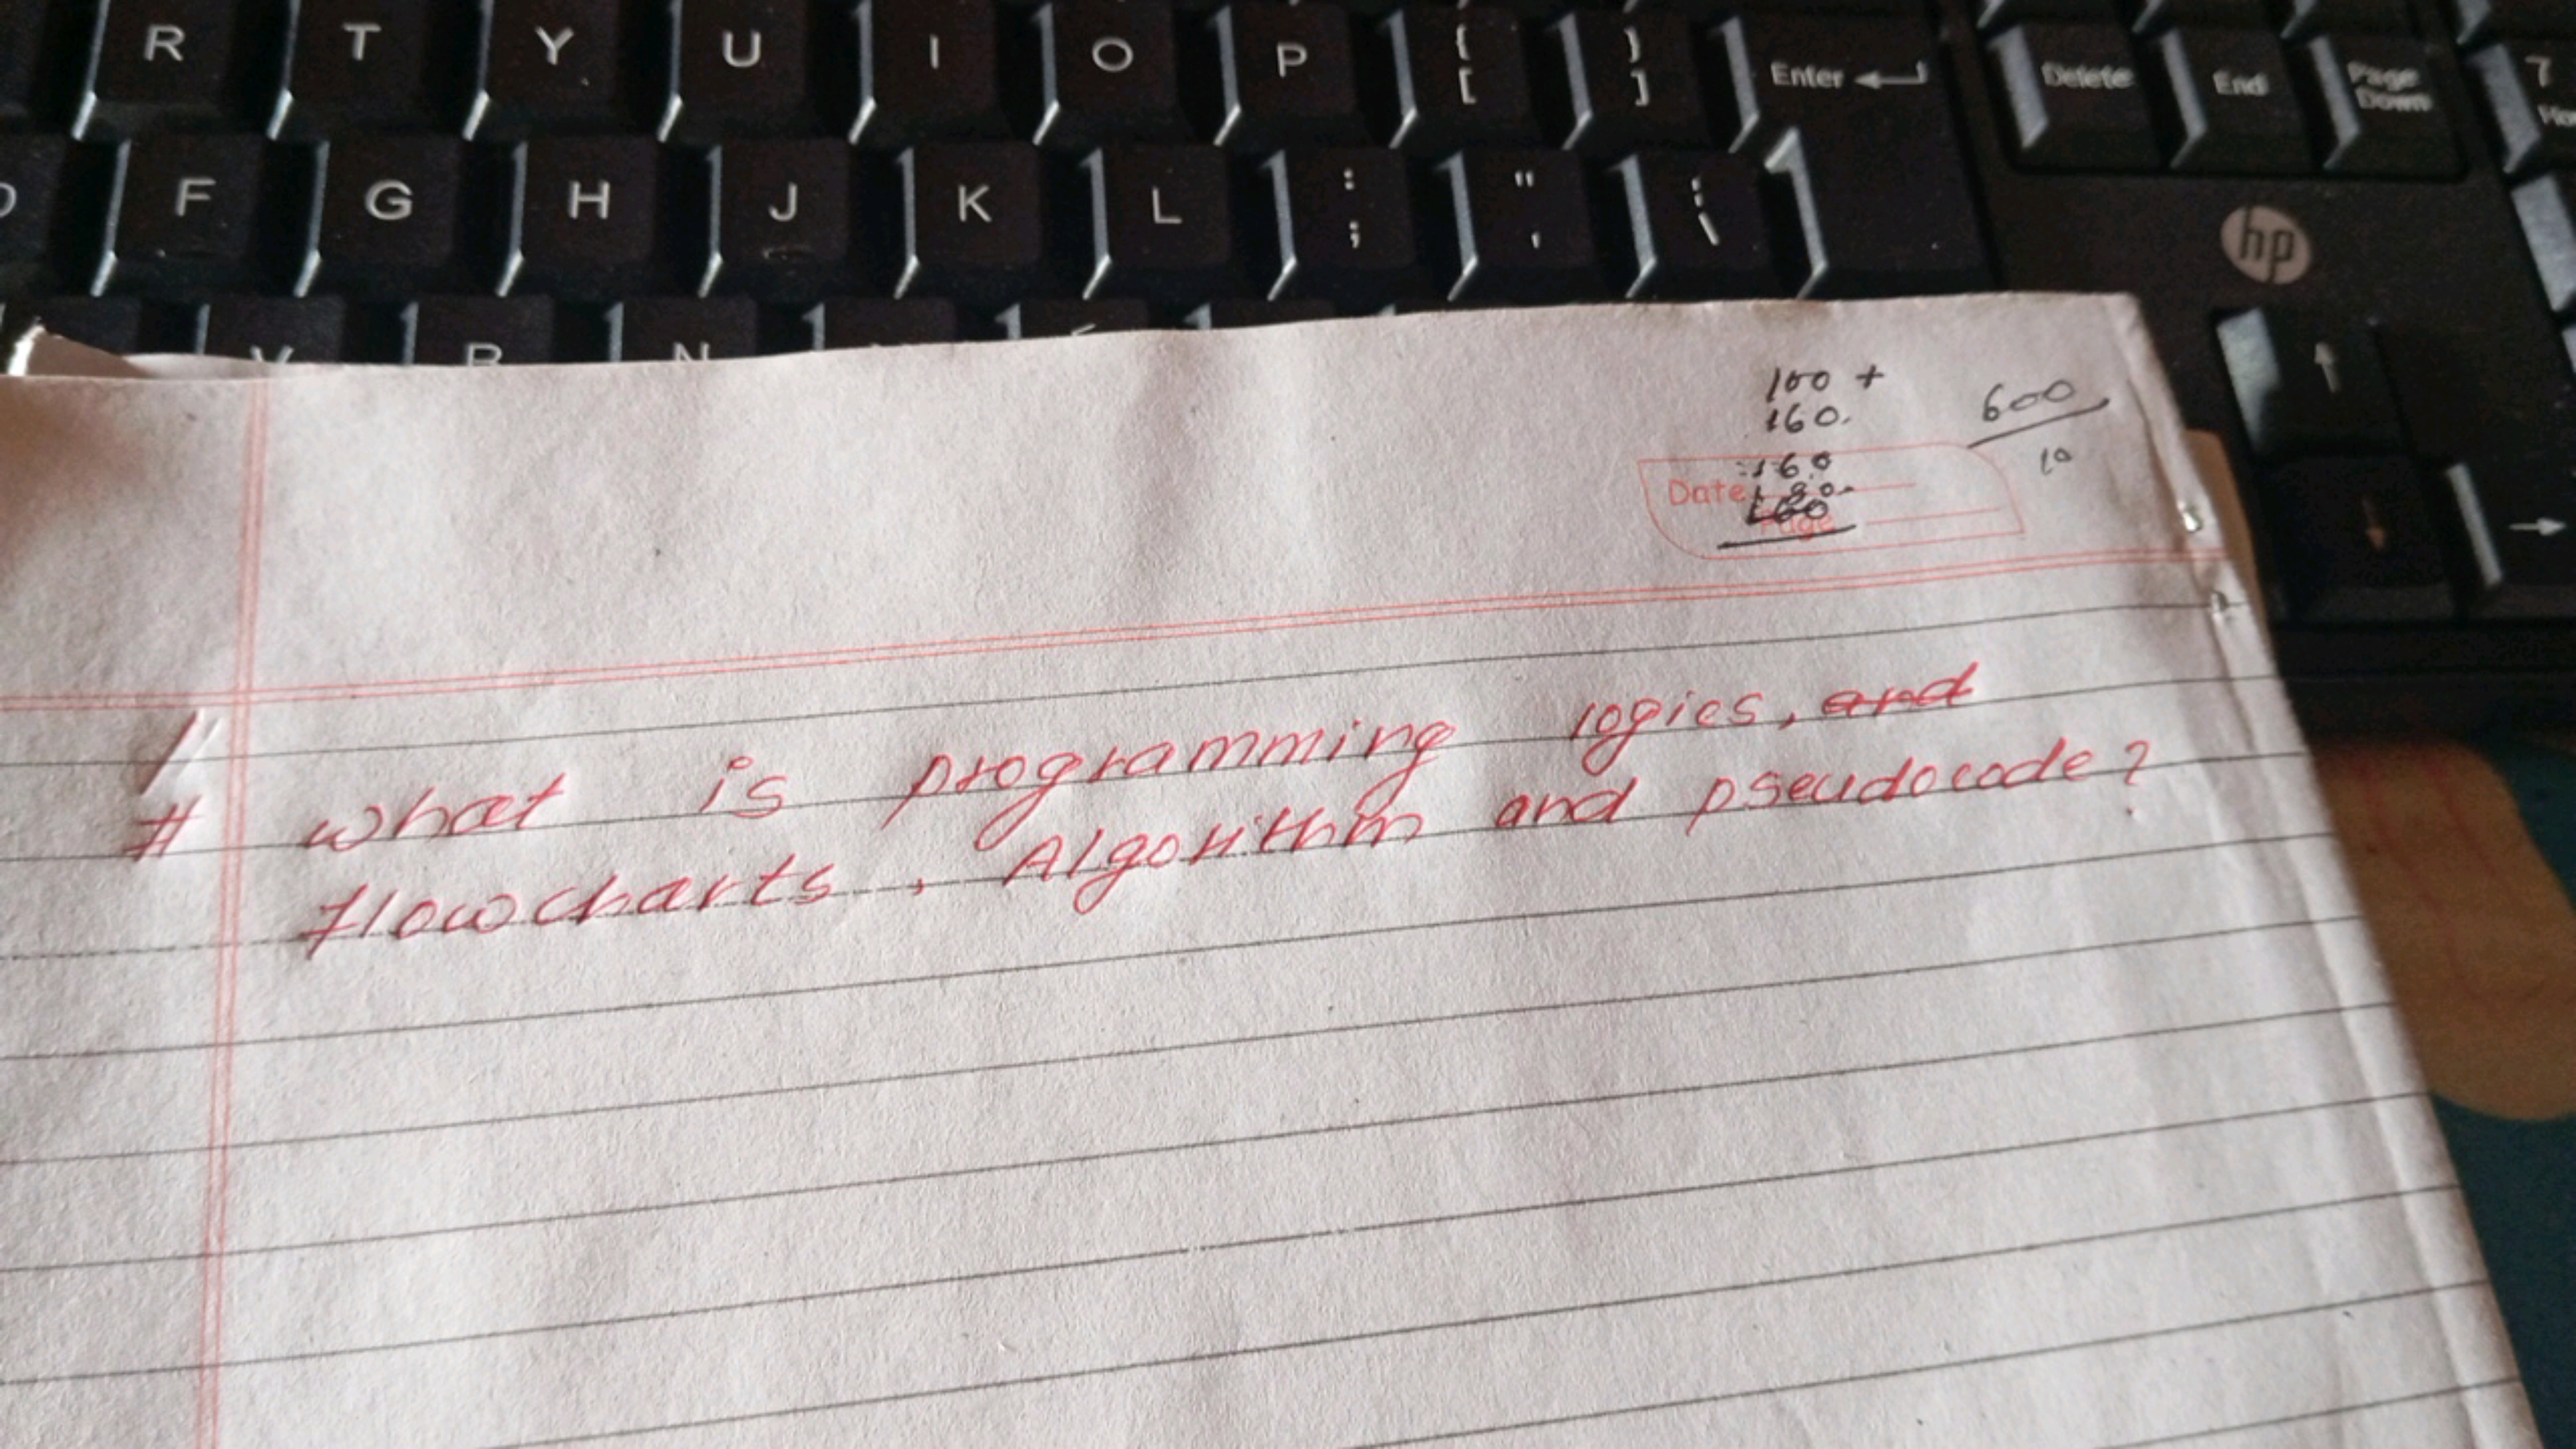 R T Y U I O P { [ } ] Enter Delete End Page Down 7
F G H J K L : ; " '  \
hp
V B N
100 +
160.
160
600
10
Date
180
Page
# what is programming logics, and
flowcharts, Algorithm and pseudocode?